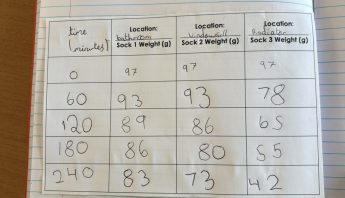 time (minutes) Location: bathroom Sock 1 Weight (g) Location: Windowsill Sock 2 Weight (g) Location: Radiator Sock 3 Weight (g)
0 97 97 97
60 93 93 78
120 89 86 65
180 86 80 55
240 83 73 42